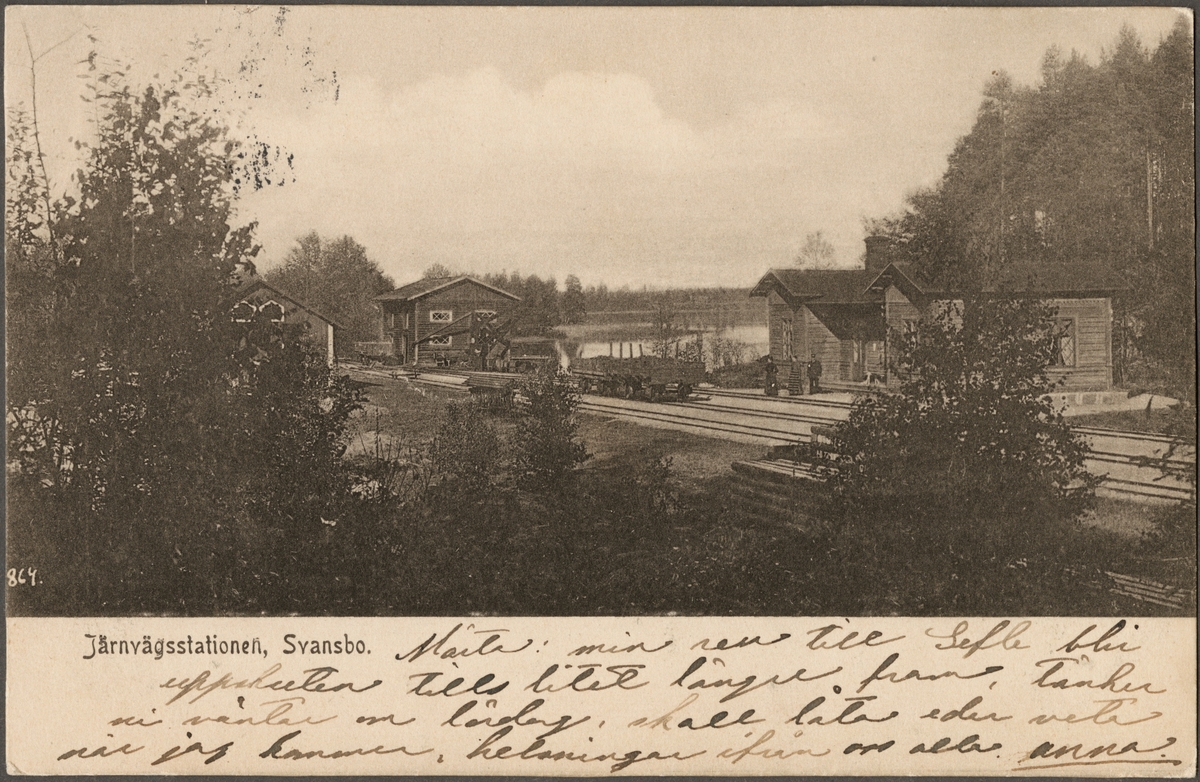 864.
Järnvägsstationen, Svansbo. Märta: min resa till Gefle blir
uppskuten tills litet längre fram, tänker
ni väntar om lördag, skall låta eder veta
när jag kommer, helsningar ifrån oss alla. anna.